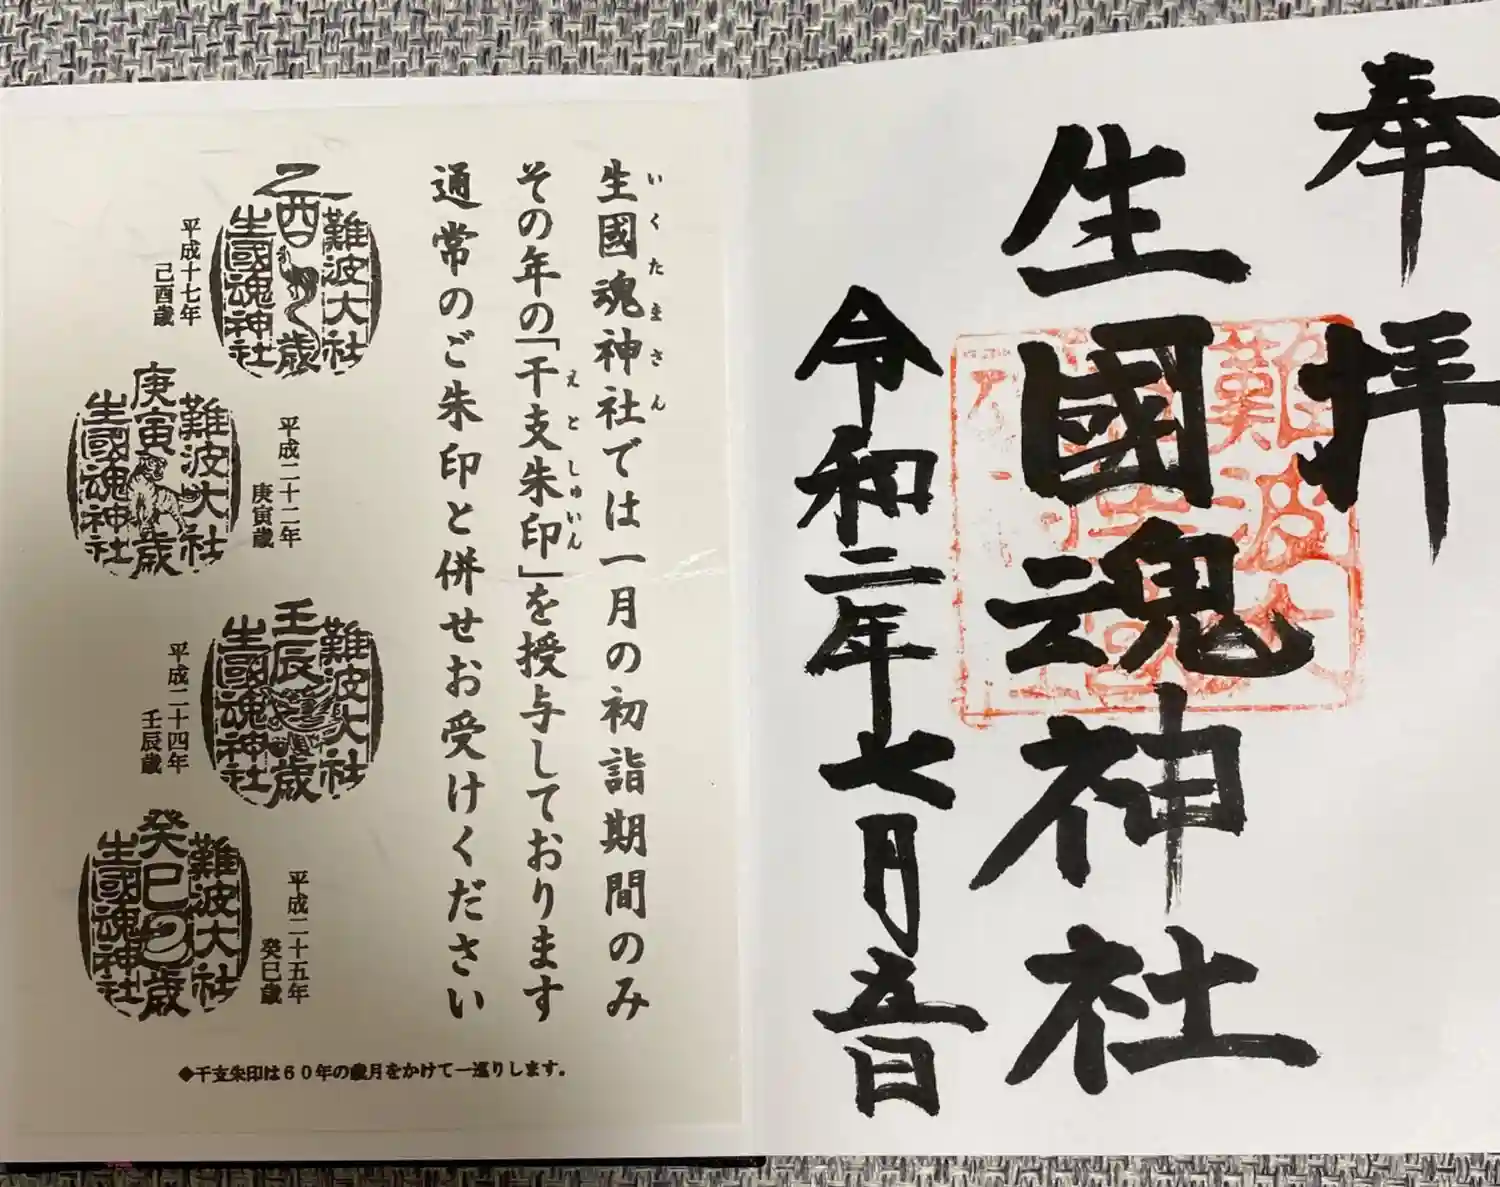 奉拝
生國魂神社
難波大
令和二年七月五日
いくたまさん
生國魂神社では一月の初詣期間のみ
えとしゅいん
その年の「干支朱印」を授与しております
通常のご朱印と併せお受けください
難波大社
乙酉歳
生國魂神社
平成十七年
己酉歳
平成二十二年
庚寅歳
難波大社
庚寅歳
生國魂神社
難波大社
壬辰歳
生國魂神社
平成二十四年
壬辰歳
平成二十五年
癸巳歳
難波大社
癸巳歳
生國魂神社
◆干支朱印は60年の歳月をかけて一巡りします。